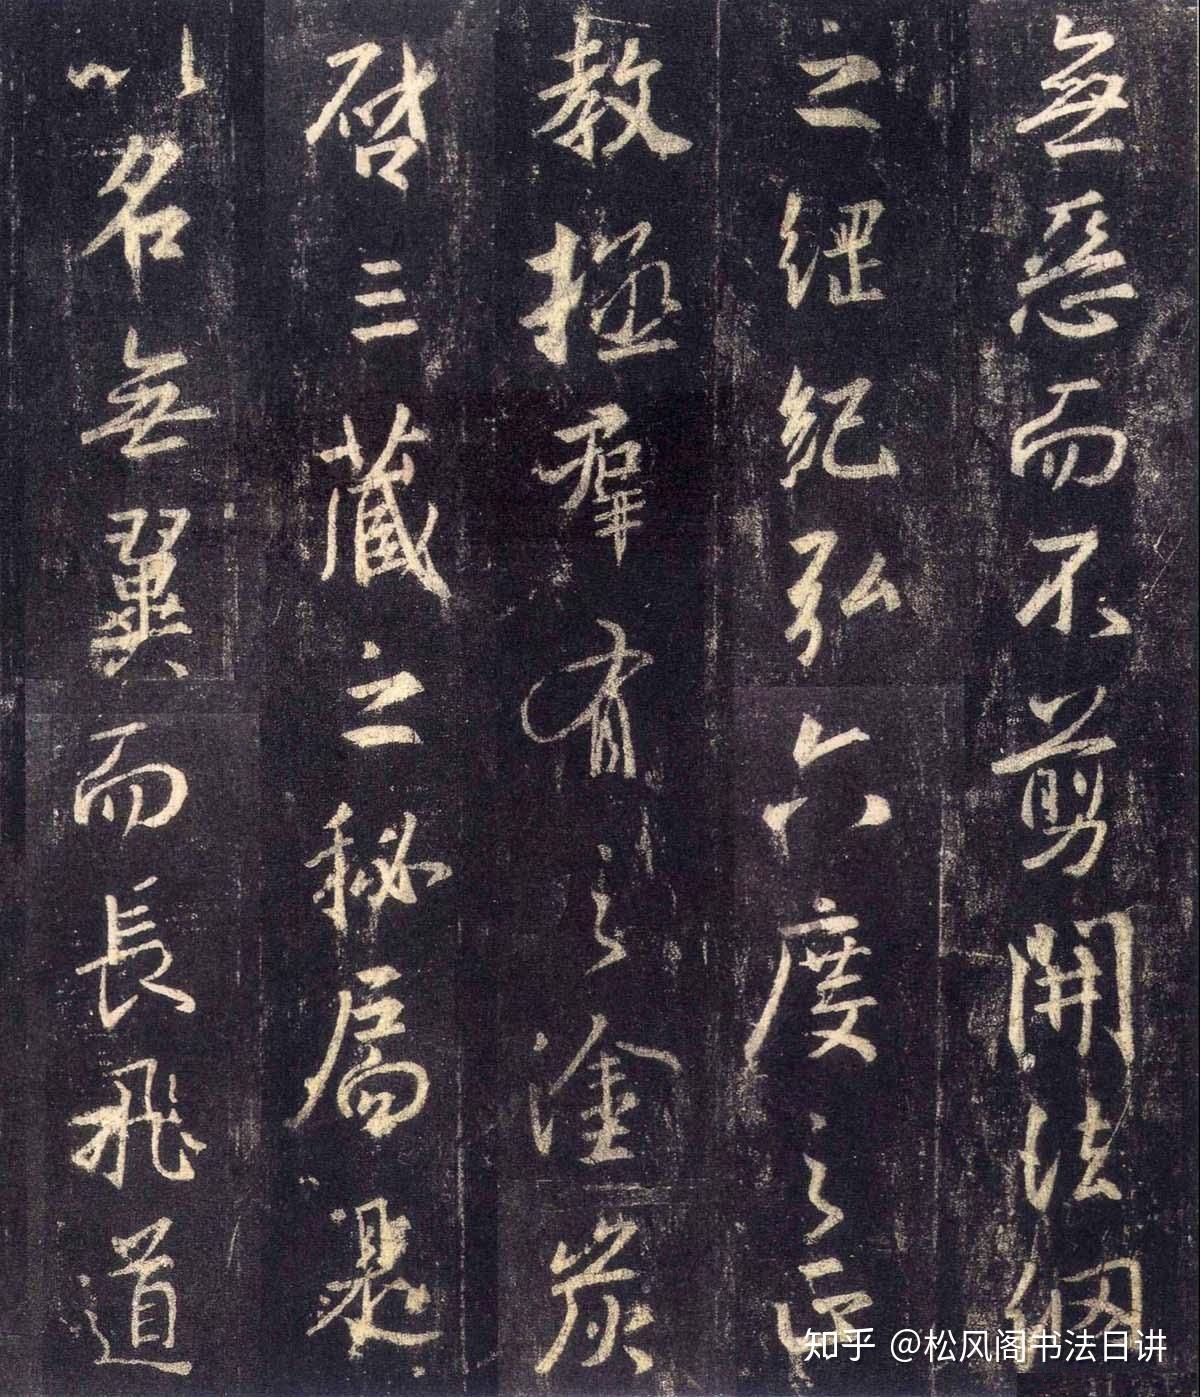 無惡而不剪開法網
之綱紀弘六度之正
教拯群有之塗炭
啓三藏之秘扃是
以名無翼而長飛道
知乎 @松风阁书法日讲